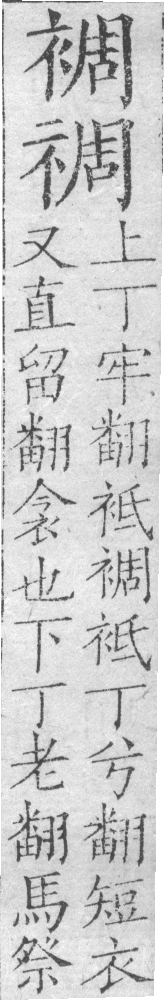 裯禂
上丁牢翻袛裯袛丁兮翻短衣
又直留翻衾也下丁老翻馬祭